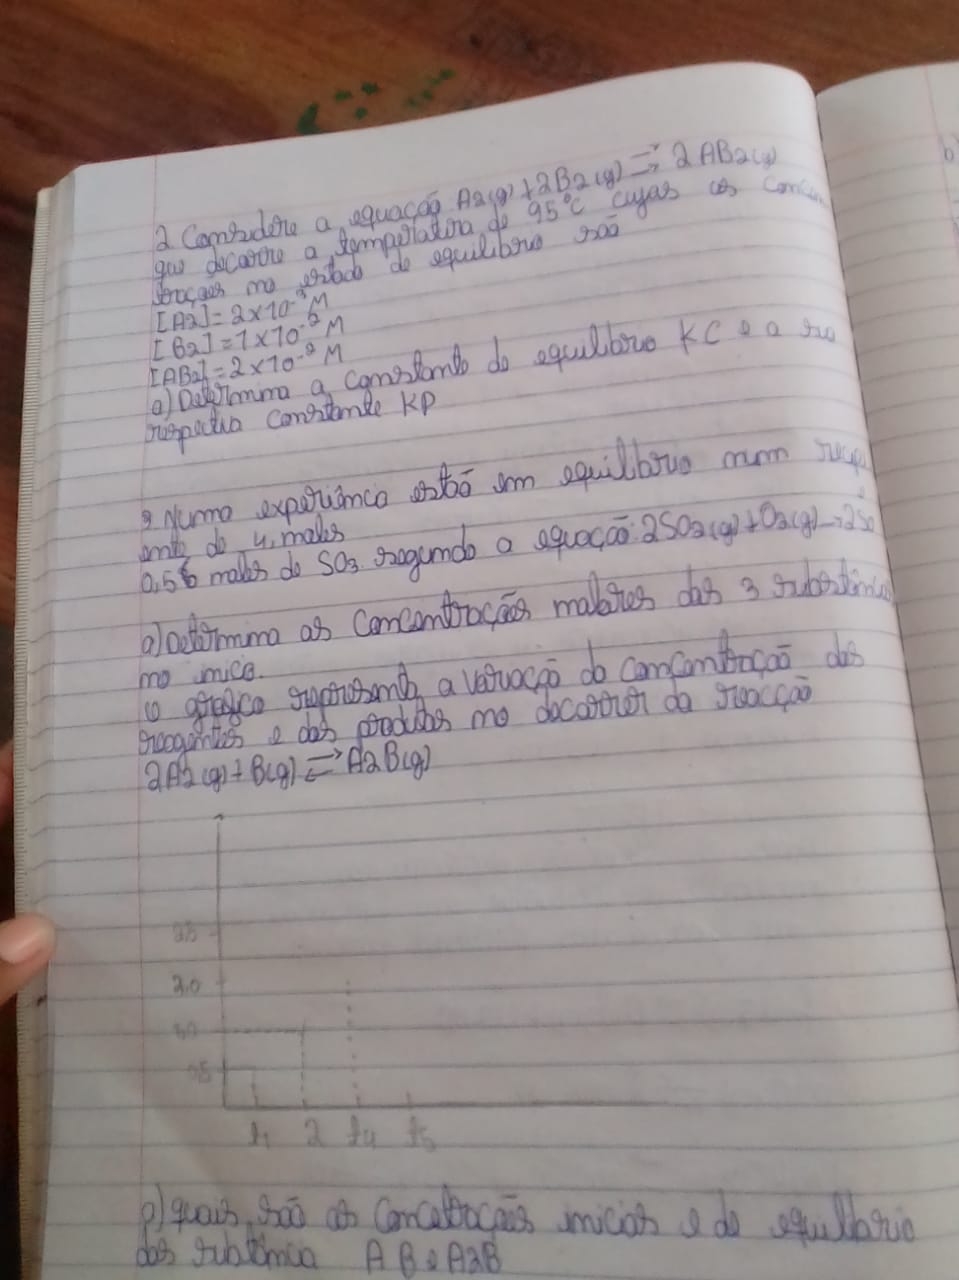 2 Considere a equação A2(g) + 2B2(g) ⇌ 2AB2(g)
que decorre a temperatura de 95°C cujas as concen
trações no estado de equilibrio são
[A2] = 2x10⁻³ M
[B2] = 1x10⁻² M
[AB2] = 2x10⁻² M
a) Determina a constante de equilibrio KC e a su
respectiva constante KP
Numa experiência estão em equilibrio num recipi
ente de 4, moles
0,56 moles de SO3 segundo a equação: 2SO2(g) + O2(g) → 2SO
a) Determina as concentrações molares das 3 substâncias
no inicio.
O gráfico representa a variação da concentração dos
reagentes e dos produtos no decorrer da reacção
2A2(g) + B(g) ⇌ A2B(g)
2.0
t1 2 t4 t5
quais são as concetrações inicias e de equilibrio
das substância A B e A2B